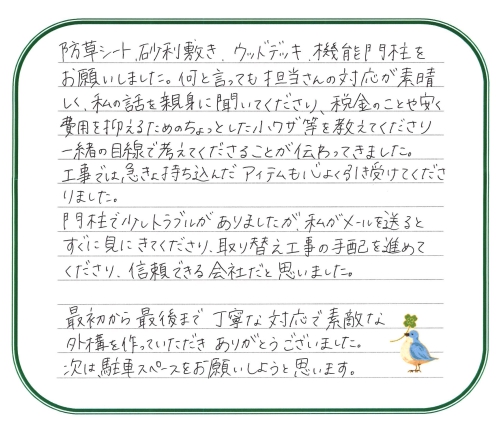 防草シート、砂利敷き、ウッドデッキ、機能門柱を
お願いしました。何と言っても担当さんの対応が素晴
しく、私の話を親身に聞いてくださり、税金のことや安く
費用を抑えるためのちょっとした小ワザ等を教えてくださり
一緒の目線で考えてくださることが伝わってきました。
工事では、急きょ持ち込んだアイテムも心よく引き受けてくださ
りました。
門柱で少しトラブルがありましたが、私がメールを送ると
すぐに見にきてくださり、取り替え工事の手配を進めて
くださり、信頼できる会社だと思いました。
最初から最後まで丁寧な対応で素敵な
外構を作っていただきありがとうございました。
次は、駐車スペースをお願いしようと思います。